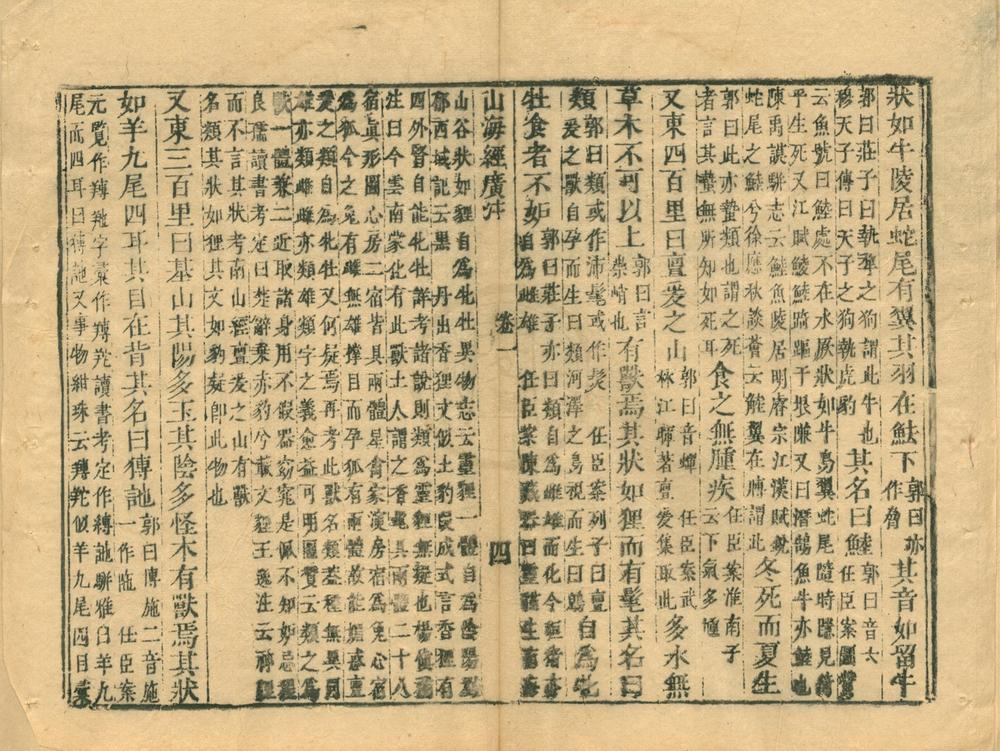 狀如牛陵居蛇尾有翼其羽在魼下郭曰亦作脅其音如留牛
郭曰莊子曰執犂之狗謂此牛也
穆天子傳曰天子之狗執虎豹
其名曰鯥郭曰音六
任臣案圖贊
云魚號曰鯥處不在水厥狀如牛鳥翼蛇尾隨時隱見倚
乎生死又江賦鯪鯥踦䠊于垠隒又曰潛鵠魚牛亦鯥也
陳禹謨駢志云鯥魚陵居明睿宗江漢賦
蛇尾之鯥兮徐應秋談薈云鯥翼在膊謂此
冬死而夏生
郭曰此亦蟄類也謂之死
者言其蟄無所知如死耳
食之無腫疾任臣案淮南子
云下氣多尰
又東四百里曰亶爰之山郭曰音蟬
任臣案武
多水無
草木不可以上郭曰言
崇峭也
有獸焉其狀如狸而有髦其名曰
類郭曰類或作沛髦或作髮
任臣案列子曰亶
爰之獸自孕而生曰類河澤之鳥視而生曰鶂
自爲牝
牡食者不妒郭曰莊子亦曰類自爲雌雄而化今
自爲雌雄
任臣案陳
山海經廣注
卷一
四
山谷狀如狸自爲牝牡異物志云靈狸一體自爲陰陽
西域記云黑 丹出香狸文似土豹段成式言香狸有
四外腎自能牝牡詳考諸說則類爲靈狸無疑也楊愼
注曰今雲南蒙化有此獸土人謂之香髦具兩體二十八
宿眞形圖心房二宿皆具兩體星禽家演房宿爲兔心宿
爲狐今之兔有雌無雄撑目而孕狐有兩體故能媚惑亶
爰之類自爲牝牡又何疑焉再考此獸名類
雄亦類雌亦類雄類字之義愈益可明
一體兼二近取諸身用不假器窈窕是佩不知妒忌
良孺讀書考定曰楚辭乘赤豹兮載文狸王逸注云神狸
而不言其狀考南山經亶爰之山有獸
名類其狀如狸其文如豹疑卽此物也
又東三百里曰基山其陽多玉其陰多怪木有獸焉其狀
如羊九尾四耳其目在背其名曰猼訑郭曰猼施二音施
一作陁
任臣案
元覽作羳羫字彙作羳羫讀書考定作縛訑駢雅曰羊九
尾而四耳曰猼訑又事物紺珠云羳羫似羊九尾四目